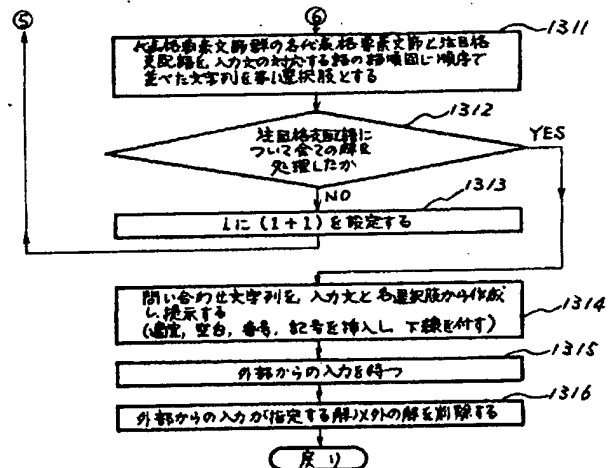 ⑤
⑥
1311
代表格要素文節群の各代表格要素文節と注目格
支配語を、入力文の対応する語の語順同じ順序で
並べた文字列を第i選択肢とする
1312
注目格支配語に
ついて全ての解を
処理したか
YES
NO
1313
iに(i+1)を設定する
1314
問い合わせ文字列を、入力文と各選択肢から作成
し提示する
(適宜, 空白, 番号, 記号を挿入し, 下線を付す)
1315
外部からの入力を待つ
1316
外部からの入力が指定する解以外の解を削除する
戻り